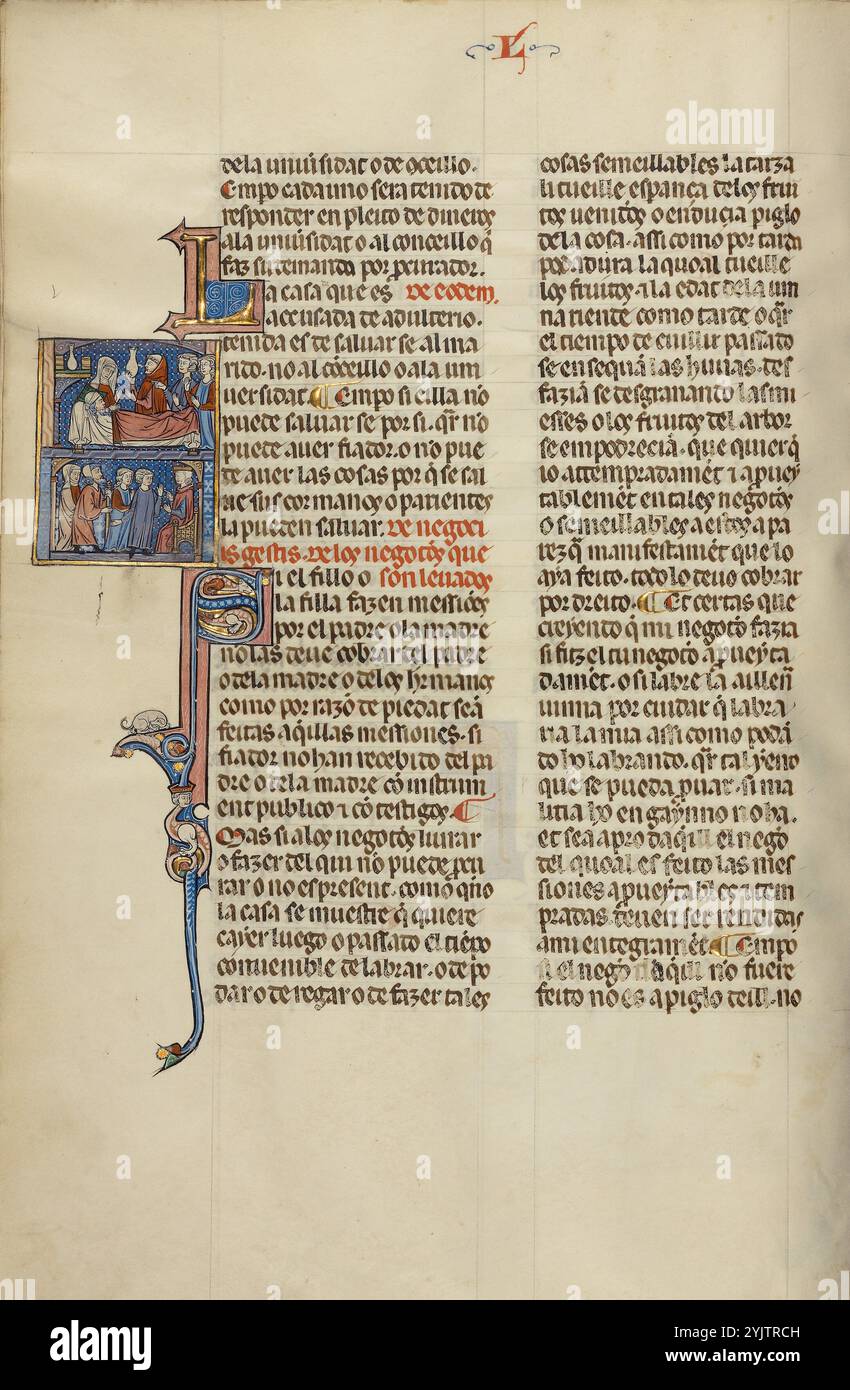 L
dela uniũsidat o de ɔceillo.
Empo cada uno sera tenido de
responder en pleito de dineros
a la uniũsidat o al conceillo q̃
faz su demanda por p̃curador.
La casa que es De eodem.
acusada de adulterio.
tenida es de saluar se al ma
rido. no al cõceillo o a la uni
uersidat. ¶ Empo si eilla no
puede saluar se por si. q̃r no
puede auer fiador. o no pue
de auer las cosas por q̃ se sal
ue sus cormanos o parientes
la pueden saluar. De negoci
is gestis. De los negocios que
Si el fillo o son leuados
la filla fazen messiões
por el padre o la madre
no las deue cobrar del padre
o de la madre o de los hrmanos
como por razõ de piedat seã
feitas aq̃illas messiones. si
fiador no han recebido del pa
dre o de la madre cõ instrum
ent publico ⁊ cõ testigos. ¶
Mas si a los negocios liurar
o fazer del qui no puede p̃cu
rar o no es present. como q̃no
la casa se muestre q̃ quiere
cayer luego o passado el tiẽpo
conuenible de labrar. o de po
dar o de regar o de fazer tales
cosas semeillables la tarza
li tueille esperança de los frui
tos uenidos o en ducia piglo
de la cosa. assi como por tarda
podadura la quoal tueille
los fruitos. a la edat de la uin
na riente como tarde o q̃r
el tiempo de cuillir passado
se en sequã las huuas. des
fazia se desgranando las mi
esses o los fruitos del arbor
se empodrecia. que quier q̃
io attempradamẽt ⁊ a puey
tablemẽt en tales negocios
o semeillables a estos a pa
rez q̃ manifestamẽt que lo
aya feito. todo lo deuo cobrar
por dreito. ¶ Et certas que
creyendo q̃ mi negocio fazia
si fiz el tu negocio a p̃ueyta
damẽt. o si labre la aillen
uinna por cuidar q̃ labra
ua la mia assi como podã
do ho labrando. q̃r tal yerro
que se pueda p̃uar. si ma
litia ho engaynno no ha.
et seã a pro daq̃il el nego
del quoal es feito las mes
siones a p̃ueytables ⁊ tem
pradas deuen ser rendidas
a mi entegramẽt. ¶ Empo
si el nego daqui no fuere
feito no es a piglo deill. no
alamy
Image ID: 2YJTRCH
www.alamy.com